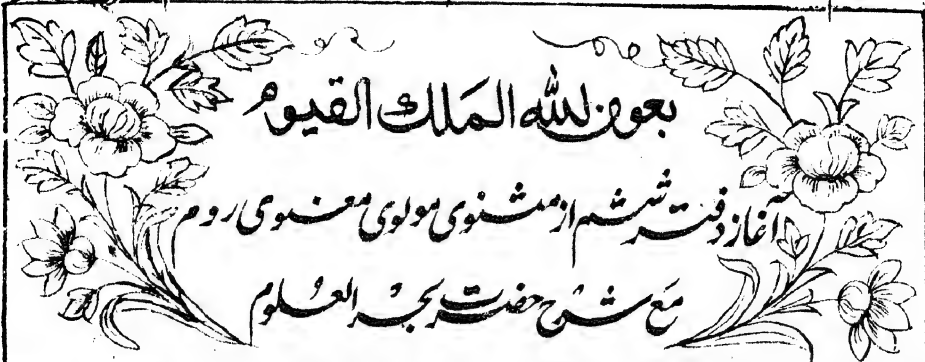 بعون لله الملك القیوم
آغاز دفتر ششم از مثنوی مولوی معنوی روم
مع شرح حضرت بحر العلوم